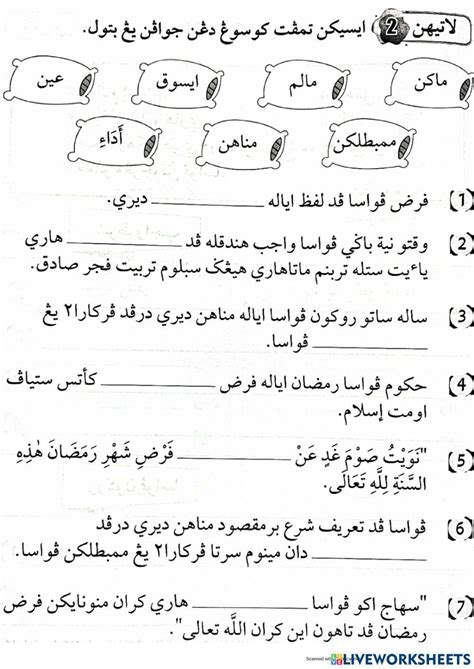 لاتيهن 2 ايسيکن تمڤت کوسوڠ دڠن جواڤن يڠ بتول.
ماکن
مالم
ايسوق
عين
ممبطلکن
مناهن
أَدَاءِ
(1) فرض ڤواسا ڤد لفظ اياله ____________ ديري.
(2) وقتو نية باݢي ڤواسا واجب هندقله ڤد ____________ هاري
يائيت ستله تربنم ماتاهاري هيڠݢ سبلوم تربيت فجر صادق.
(3) ساله ساتو روکون ڤواسا اياله مناهن ديري درڤد ڤرکارا٢ يڠ
____________ ڤواسا.
(4) حکوم ڤواسا رمضان اياله فرض ____________ کأتس ستياڤ
اومت إسلام.
(5) "نَوَيْتُ صَوْمَ غَدٍ عَنْ ____________ فَرْضِ شَهْرِ رَمَضَانَ هَٰذِهِ
السَّنَةِ لِلَّهِ تَعَالَى.
(6) ڤواسا ڤد تعريف شرع برمقصود مناهن ديري درڤد
____________ دان مينوم سرتا ڤرکارا٢ يڠ ممبطلکن ڤواسا.
(7) "سهاج اکو ڤواسا ____________ هاري کران منونايکن فرض
رمضان ڤد تاهون اين کران اللَّه تعالى".
LIVEWORKSHEETS